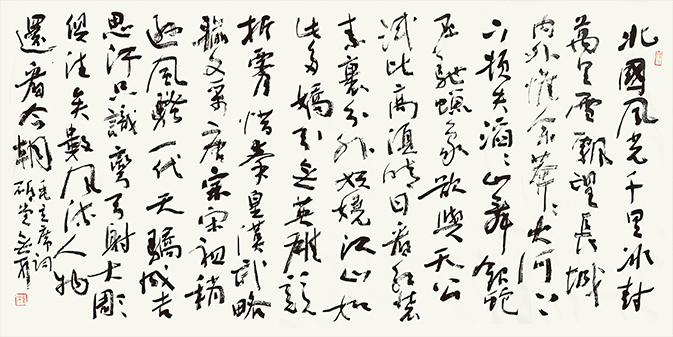 北國風光千里冰封
萬里雪飄望長城
內外惟余莽々大河上
下頓失滔々山舞銀蛇
原馳蠟象欲與天公
試比高須晴日看紅裝
素裹分外妖嬈江山如
此多嬌引無英雄競
折腰惜秦皇漢武略
輸文采唐宗宋祖稍
遜風騷一代天驕成吉
思汗只識彎弓射大雕
俱往矣數風流人物
還看今朝
毛主席詞